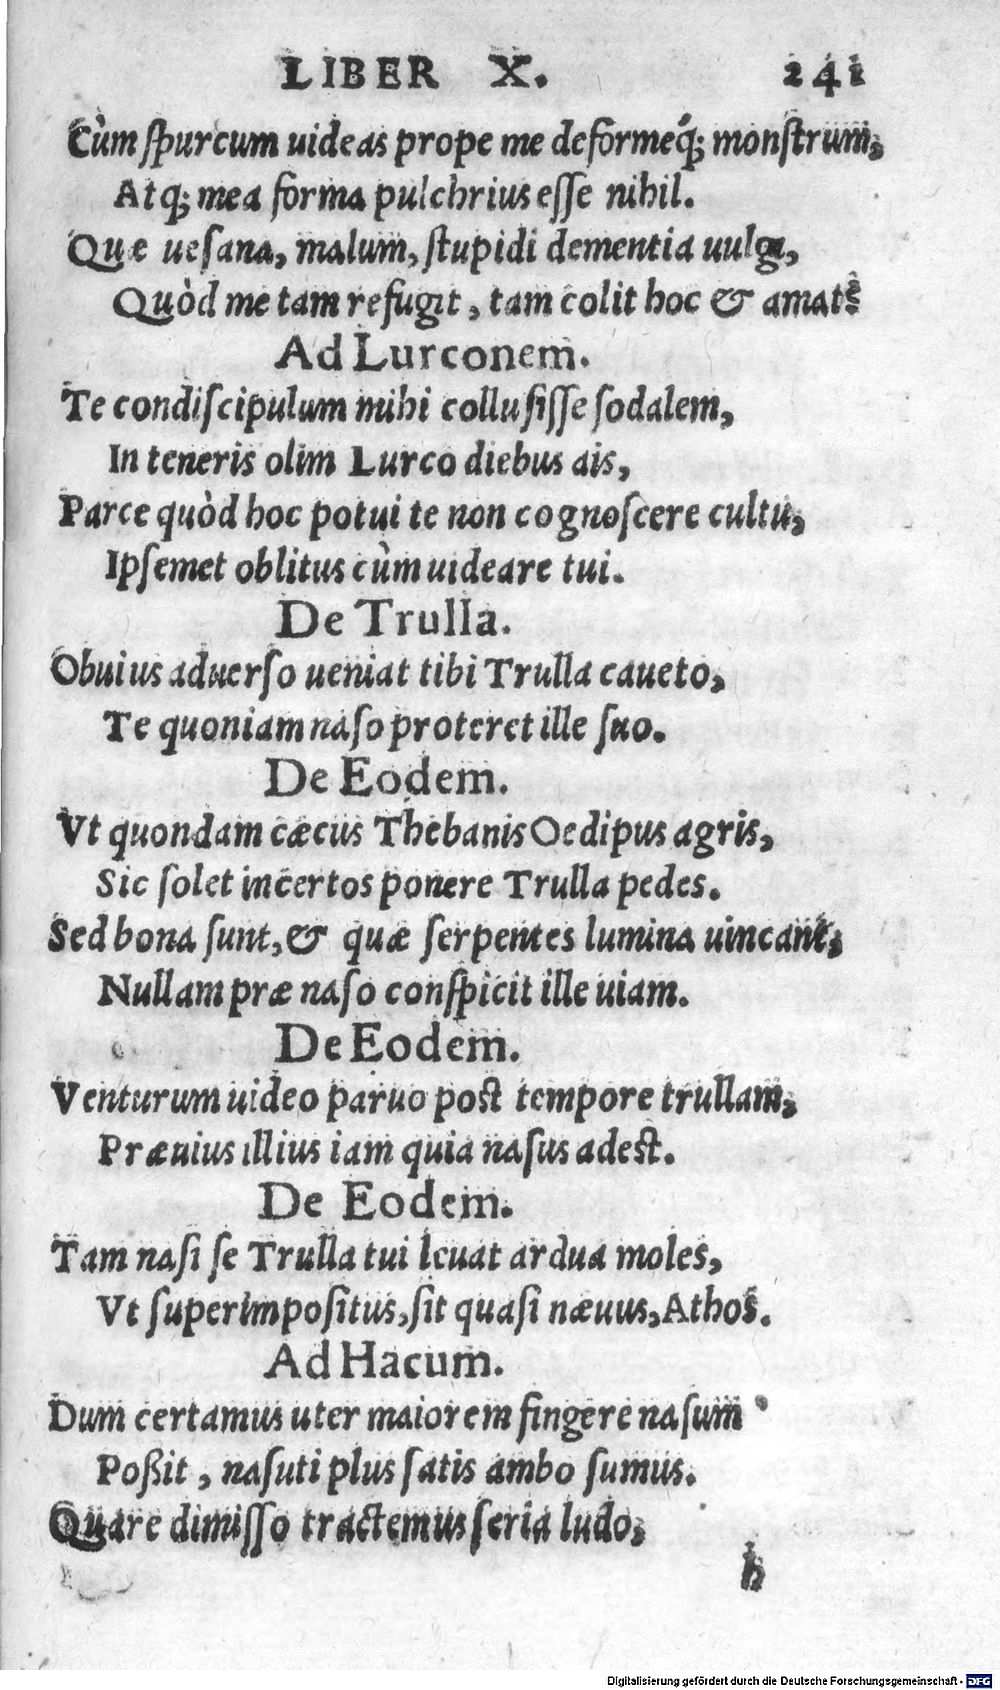 LIBER X. 241
Cùm ſpurcum uideas prope me deformeq́; monſtrum,
Atq; mea forma pulchrius eſſe nihil.
Quæ ueſana, malum, ſtupidi dementia uulgi,
Quòd me tam refugit, tam colit hoc & amat?
Ad Lurconem.
Te condiſcipulum mihi colluſiſſe ſodalem,
In teneris olim Lurco diebus ais,
Parce quòd hoc potui te non cognoſcere cultu,
Ipſemet oblitus cùm uideare tui.
De Trulla.
Obuius aduerſo ueniat tibi Trulla caueto,
Te quoniam naſo proteret ille ſuo.
De Eodem.
Vt quondam cæcus Thebanis Oedipus agris,
Sic ſolet incertos ponere Trulla pedes.
Sed bona ſunt, & quæ ſerpentes lumina uincant,
Nullam præ naſo conſpicit ille uiam.
De Eodem.
Venturum uideo paruo poſt tempore trullam,
Præuius illius iam quia naſus adeſt.
De Eodem.
Tam naſi ſe Trulla tui leuat ardua moles,
Vt ſuperimpoſitus, ſit quaſi næuus, Athos.
Ad Hacum.
Dum certamus uter maiorem fingere naſum
Poßit, naſuti plus ſatis ambo ſumus.
Quare dimiſſo tractemus ſeria ludo,
h
Digitalisierung gefördert durch die Deutsche Forschungsgemeinschaft - DFG